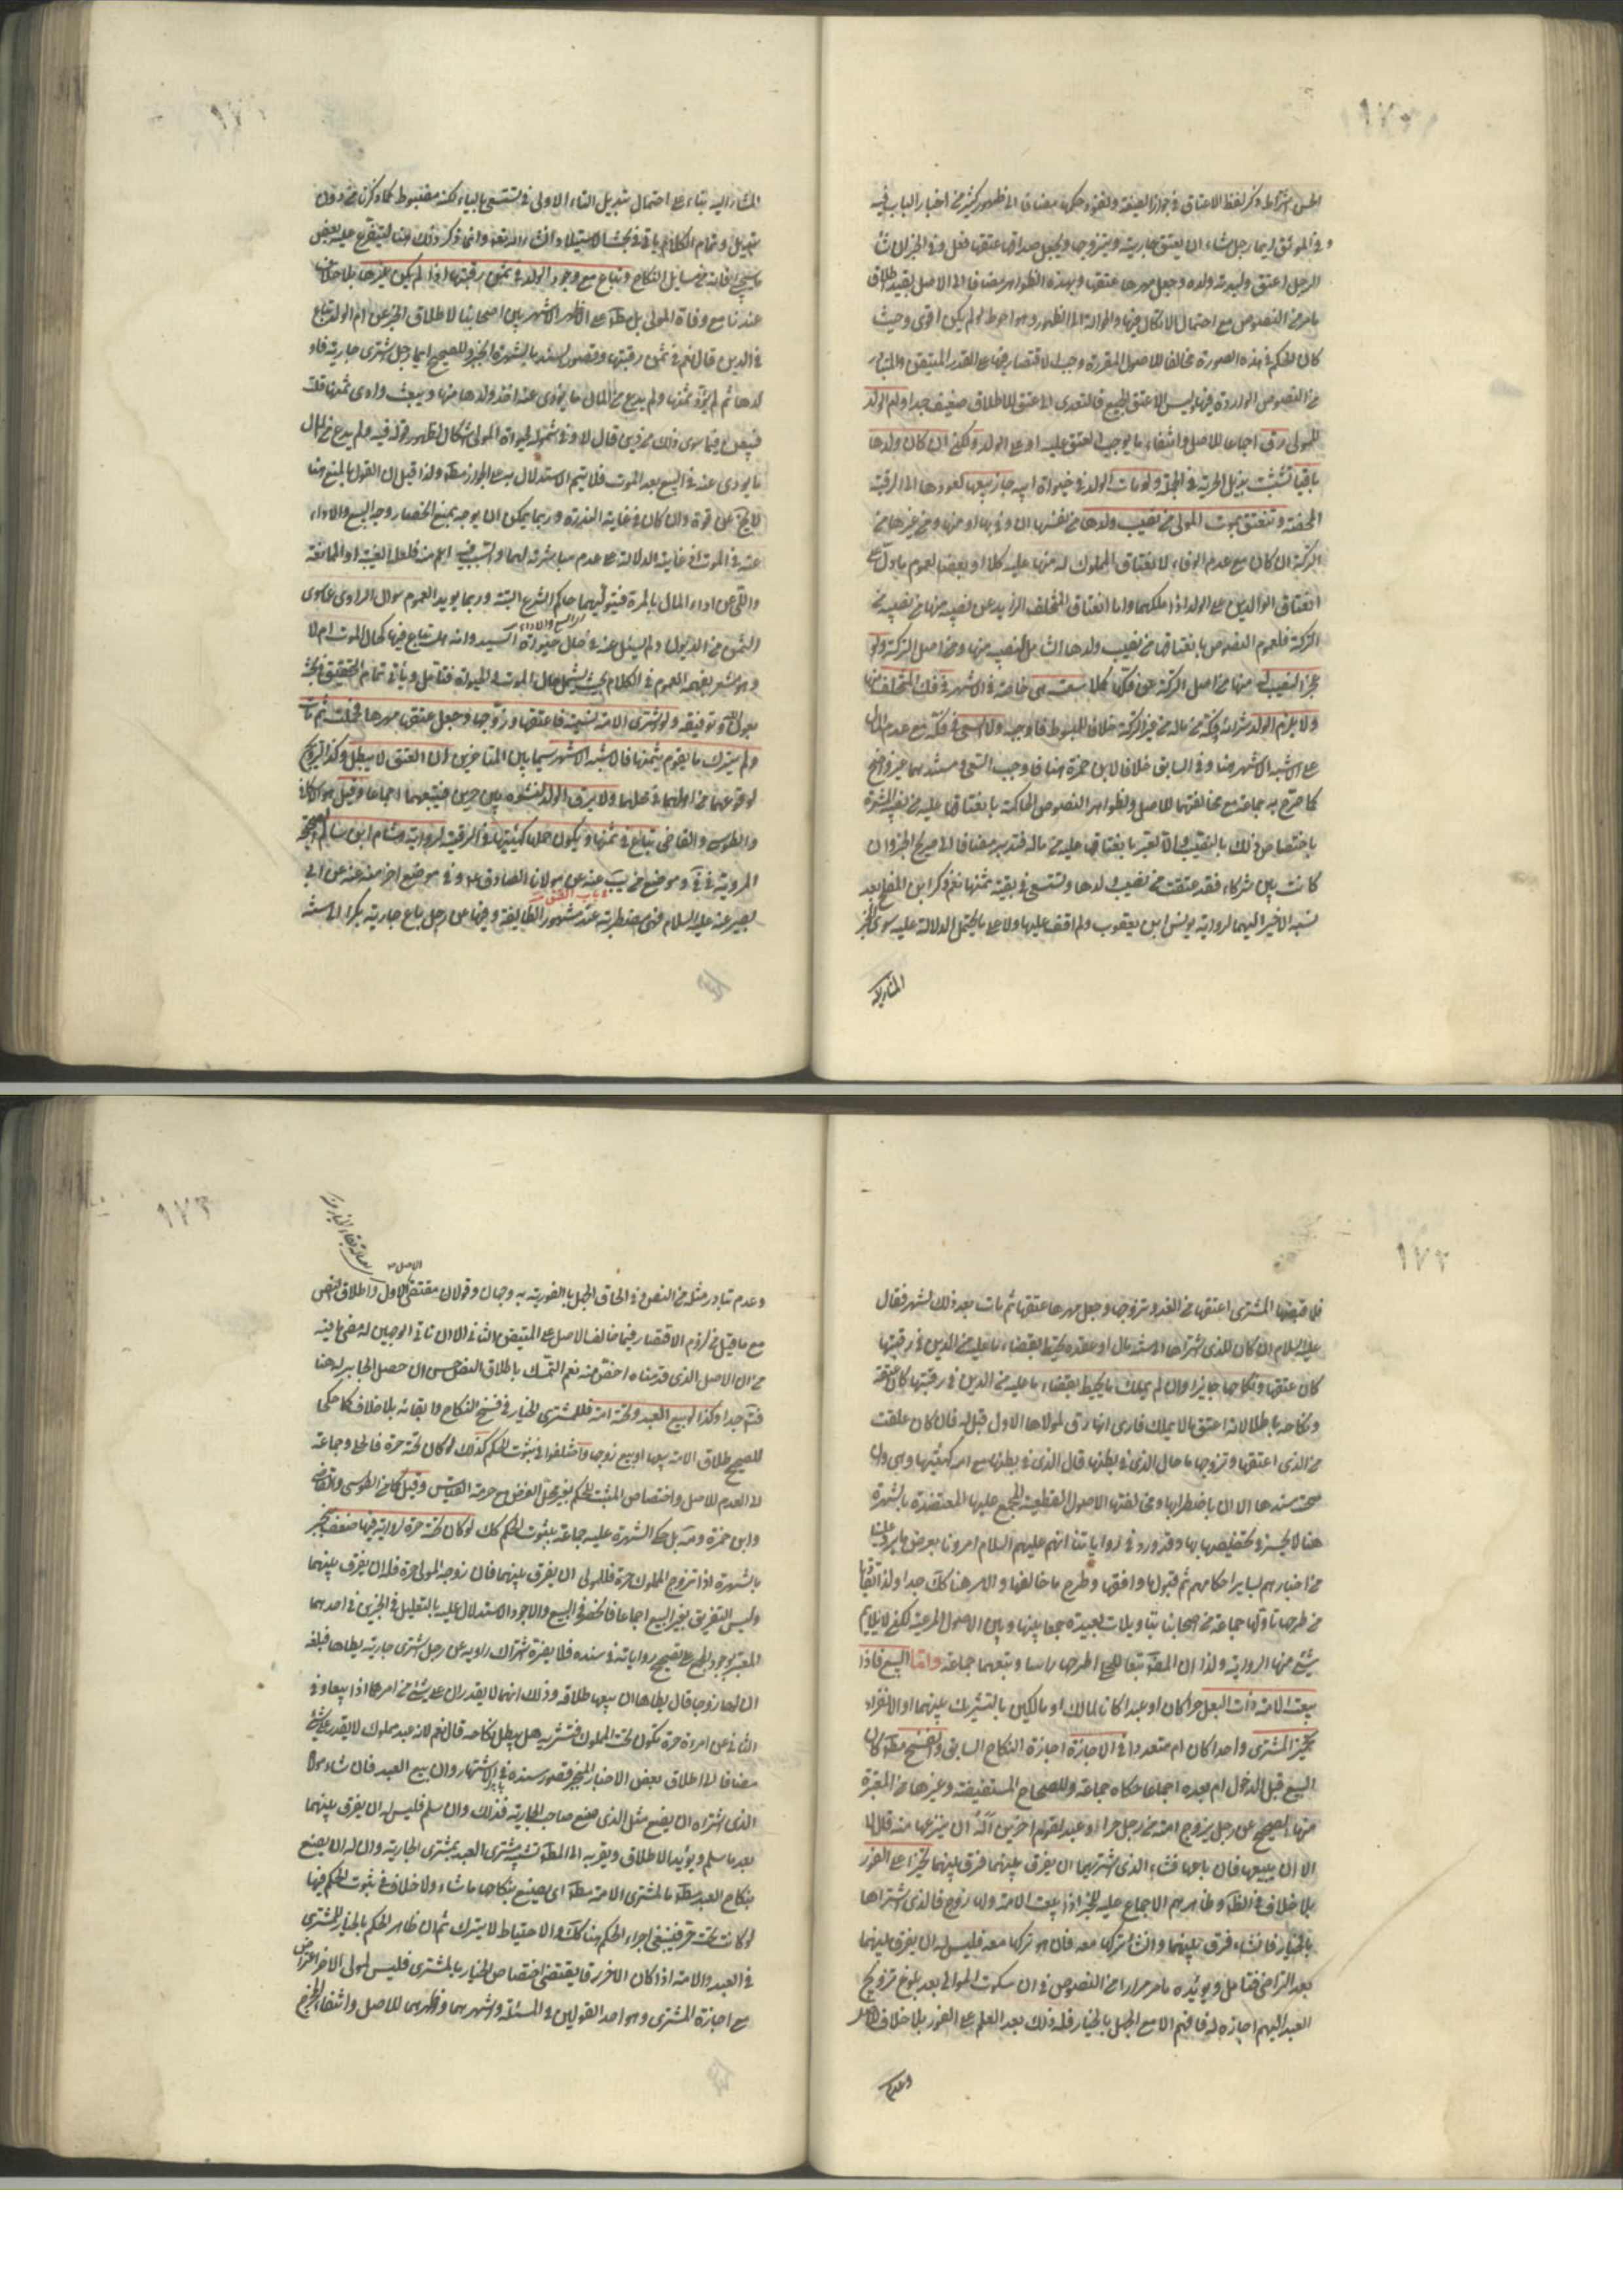 وفي الموثق ايما رجل شاء ان يعتق جاريته ويتزوجها ويجعل صداقها عتقها فعل وفي الخبر ان شاء
الرجل اعتق وليدته وجعل مهرها عتقها وبهذه الظواهر مضافا الى الاصل
مع احتمال الاتكال فيها والحوالة الى الظهور وهو احوط لو لم يكن اقوى وحيث
كان الحكم في هذه الصورة مخالفا للاصول المقررة وجب الاقتصار فيها على القدر المتيقن
من النصوص الواردة فيها وليس الا عتق الجميع فالتعدى الى عتق للاطلاق ضعيف جدا وام الولد
للمولى رق اجماعا للاصل وانتفاء ما يوجب العتق عليه او على الولد ولكن ان كان ولدها
باقيا تشبثت بذيل الحرية في الجملة ولو مات الولد في حيوة ابيه جاز بيعها لعودها الى الرقية
المحضة وتنعتق بموت المولى من نصيب ولدها
التركة ان كان مع عدم الوفاء لانعتاق المملوك له منها عليه كلا او بعضا لعموم ما دل على
انعتاق الوالدين على الولد اذا ملكهما واما انعتاق المتخلف الزايد عن نصيبه منها من نصيبه من
التركة فلعموم النصوص بانعتاقها من نصيب ولدها الشامل لنصيبه منها ومن اصل التركة ولو
عجز النصيب منها من اصل التركة عن فكها كلا سعت هي خاصة في الاشهر في فك المتخلف منها
ولا يلزم الولد شراؤه وفكه من ماله من غير التركة خلافا للمبسوط فاوجبه ولا السعى في فكه مع عدم المال
على الاشبه الاشهر هنا وفي السابق خلافا لابن حمزة هنا فاوجب السعى ومستندهما غير واضح
كما صرح به جماعة مع مخالفتهما للاصل وظواهر النصوص الحاكمة بانعتاقها عليه من نصيبه
باختصاص ذلك بالنصيب والا لعبر بانعتاقها عليه من ماله فتدبر مضافا الى صريح الخبر وان
كانت بين شركاء فقد عتقت من نصيب ولدها وتستسعى في بقية ثمنها نعم ذكر ابن المفلح بعد
نسبة الاخير اليهما لرواية يونس ابن يعقوب ولم اقف عليها ولا على ما يحتمل الدلالة عليه سوى الخبر
المشار اليه
المشار اليه بناء على احتمال تبديل التاء الاولى في تستسعى بالياء لكنه مضبوط كما ذكرنا من دون
تبديل وتمام الكلام ياتى في بحث الاستيلاد انشاء الله تعالى وانما ذكر ذلك هنا ليتفرع عليه بعض
ما سيجيء في مسايل النكاح وتباع مع وجود الولد في ثمن رقبتها اذا لم يكن غيرها بلا خلاف
عندنا مع وفاة المولى بل مطلقا على الاظهر الاشهر بين اصحابنا لاطلاق الخبر عن ام الولد تباع
في الدين قال نعم في ثمن رقبتها وقصور السند بالشهرة الصحيح ايما رجل اشترى جارية فاو
لدها ثم لم يؤد ثمنها ولم يدع من المال ما يؤدى عنه اخذ ولدها منها وبيعت وادى ثمنها قلت
فيبعن فيما سوى ذلك من دين قال لا وفي شموله لحيوة المولى اشكال لظهور قوله فيه ولم يدع من المال
ما يؤدى عنه في البيع بعد الموت فلا يتم الاستدلال به على الجواز مطلقا ولذا قيل ان القول بالمنع هنا
لا يخ عن قوة وان كان في غاية الندرة وربما يمكن ان يوجه بمنع انحصار وجه البيع والاداء
عنه في الموت اذ غايته الدلالة على عدم مباشرته لهما والسبب فيه اعم منه فلعله الغيبة او المماطلة
والتقى عن اداء المال بالمرة فيتوليهما حاكم الشرع البتة وربما يؤيد العموم سؤال الراوى عما سوى
وهو مشعر بفهمه العموم في الكلام بحيث يشمل حال الموت والحيوة فتامل وياتى تمام التحقيق في بحثه
بعون الله وتوفيقه ولو اشترى الامة نسيئة فاعتقها وتزوجها وجعل عتقها مهرها فحملت ثم مات
ولم يترك ما يقوم بثمنها فالاشبه الاشهر سيما بين المتاخرين ان العتق لا يبطل وكذا التزويج
لوقوعهما من اهلهما في محلهما ولا يرق الولد لنشوه بين حرين فيتبعهما اجماعا وقيل هو الاسكافي
والطوسى والقاضى تباع في ثمنها ويكون حملها كهيئتها في الرقية لرواية هشام ابن سالم الصحيحة
المروية في في وموضع من يب عنه عن مولانا الصادق ع وفي موضع اخر منه عنه عن ابي
بصير عنه عليه السلام فهى مضطربة عند مشهور الطايفة وفيها عن رجل باع جارية بكرا الى سنة
١٧٣
فلما قبضها المشترى اعتقها من الغد وتزوجها وجعل مهرها عتقها ثم مات بعد ذلك بشهر فقال
عليه السلام ان كان للذى اشتراها الى سنة مال او عقدة تحيط بقضاء ما عليه من الدين في رقبتها
كان عتقه ونكاحه جايزا وان لم يملك ما يحيط بقضاء ما عليه من الدين في رقبتها كان عتقه
ونكاحه باطلا لانه اعتق ما لا يملك فارى انها رق لمولاها الاول قيل له فان كان علقت
من الذى اعتقها وتزوجها ما حال الذى في بطنها قال الذى في بطنها مع امه كهيئتها وهى وان
صحت سندها الا ان باضطرابها ومخالفتها الاصول القطعية المجمع عليها المعتضدة بالشهرة
هنا لا يجسر تخصيصها بها وقد ورد في رواياتنا انهم عليهم السلام امرونا بعرض ما يرد علينا
من اخبارهم لساير احكامهم ثم قبول ما وافقها وطرح ما خالفها والامر هنا كك جدا
من طرحها تاولها جماعة من اصحابنا بتاويلات بعيدة جمعا بينها وبين الاصول المرعية لكن لا يلايم
شيئ منها الرواية ولذا ان المصنف تبعا للحلى اطرحها راسا وتبعهما جماعة واما البيع فاذا
بيعت الامة ذات البعل حرا كان او عبدا كانا لمالك او مالكين بالتشريك بينهما او الانفراد
تخير المشترى واحدا كان ام متعددا في الاجازة اجازة النكاح السابق والفسخ مطلقا كان
البيع قبل الدخول ام بعده اجماعا حكاه جماعة وللصحاح المستفيضة وغيرها من المعتبرة
منها الصحيح عن رجل يزوج امته من رجل حر او عبد لقوم اخرين اله ان ينزعها منه قال لا
الا ان يبيعها فان باعها فشاء الذى اشتريها ان يفرق بينهما فرق بينهما تخيرا على الفور
بلا خلاف في الظاهر وظاهرهم الاجماع عليه للخبر اذا بيعت الامة ولها زوج فالذى اشتراها
بالخيار فان شاء فرق بينهما وان شاء تركها معه فان هو تركها معه فليس له ان يفرق بينهما
بعد التراضى فتامل ويؤيده ما مر مرارا من النصوص في ان سكوت الموالى بعد بلوغ تزويج
العبد اليهم اجازة له فافهم الا مع الجهل بالخيار فله ذلك بعد العلم على الفور بلا خلاف
وعدم
١٧٣
وعدم تبادر مثله من النص وفي الحاق الجهل بالفورية به وجهان وقولان مقتضى الاصل الاول واطلاق النص
مع ما قيل من لزوم الاقتصار فيما خالف الاصل على المتيقن الثانى الا ان ثانى الوجهين له مضى ما فيه
من ان الاصل الذى قدمناه اخص منه نعم التمسك باطلاق النص حسن ان حصل الجابر له هنا
فتم جدا وكذا لو بيع العبد وتحته امة فللمشترى الخيار في فسخ النكاح وابقائه بلا خلاف كما حكى
للصحيح طلاق الامة بيعها او بيع زوجها واختلفوا في ثبوت الحكم كذلك لو كان تحته حرة فالحلى وجماعة
الى العدم للاصل واختصاص المثبت للحكم بغير محل الفرض مع حرمة القياس وقيل كما عن الطوسى والقاضى
وابن حمزة ومه بل حكى الشهرة عليه جماعة بثبوت الحكم كك لو كان تحته حرة لرواية فيها ضعف تنجبر
بالشهرة اذا تزوج المملوك حرة فللمولى ان يفرق بينهما فان زوجه المولى حرة فله ان يفرق بينهما
وليس التفريق بغير البيع اجماعا فانحصر في البيع والاجود الاستدلال عليه بالتعليل في الخبرين في احدهما
المعتبر بوجود المجمع على تصحيح رواياته في سنده فلا يضره اشتراك راويه عن رجل اشترى جارية يطاها فبلغه
ان لها زوجا قال يطاها ان بيعها طلاقها وذلك انهما لا يقدران على شئ من امرهما اذا بيعا وفي
الثانى عن امراة حرة تكون تحت المملوك فتشتريه هل يبطل نكاحه قال نعم لانه عبد مملوك لا يقدر على شئ
مضافا الى اطلاق بعض الاخبار المنجبر قصور سنده بالاشتهار وان بيع العبد فان شاء مولاه
الذى اشتراه ان يصنع مثل الذى صنع صاحب الجارية فذلك وان سلم فليس له ان يفرق بينهما
بعد ما سلم ويؤيد الاطلاق ويقربه الى المطلق تشبيه مشترى العبد بمشترى الجارية وان له ان يصنع
بنكاح العبد مطلقا ما لمشترى الامة مطلقا ان يصنع بنكاحها ما شاء ولا خلاف في ثبوت الحكم فيها
لو كانت تحت حر فينبغى اجراء الحكم هنا كك والاحتياط لا يترك ثم ان ظاهر الحكم بالخيار للمشترى
في العبد والامة اذا كان الاخر رقا يقتضى اختصاص الخيار بالمشترى فليس لمولى الاخر اعتراض
مع اجازة المشترى وهو احد القولين في المسئلة واشهرهما واظهرهما للاصل وانتفاء المخرج